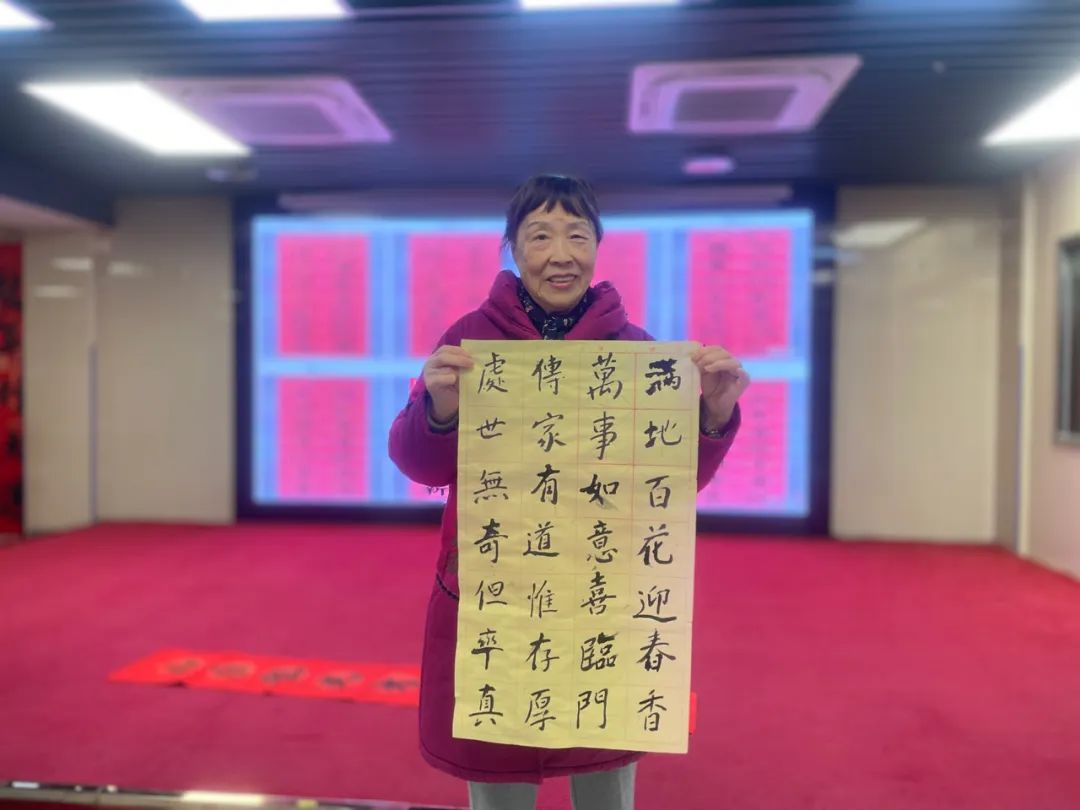 滿地百花迎春香
萬事如意喜臨門
傳家有道惟存厚
處世無奇但率真